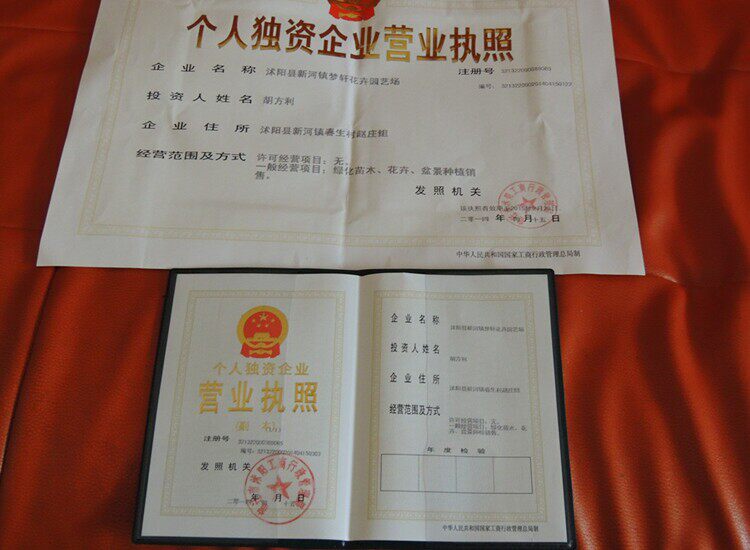 个人独资企业营业执照
企业名称 沭阳县新河镇梦轩花卉园艺场
注册号
编号:
投资人姓名 胡方利
企业住所 沭阳县新河镇春生村赵庄组
经营范围及方式 许可经营项目：无。
一般经营项目：绿化苗木、花卉、盆景种植销
售。
发照机关
二〇一四年 月十五日
中华人民共和国国家工商行政管理总局制
个人独资企业
营业执照
(副本)
注册号
编号:
发照机关
二〇一四年 月十五日
企业名称 沭阳县新河镇梦轩花卉园艺场
投资人姓名 胡方利
企业住所 沭阳县新河镇春生村赵庄组
经营范围及方式 许可经营项目：无。
一般经营项目：绿化苗木、花
卉、盆景种植销售。
年度检验
中华人民共和国国家工商行政管理总局制